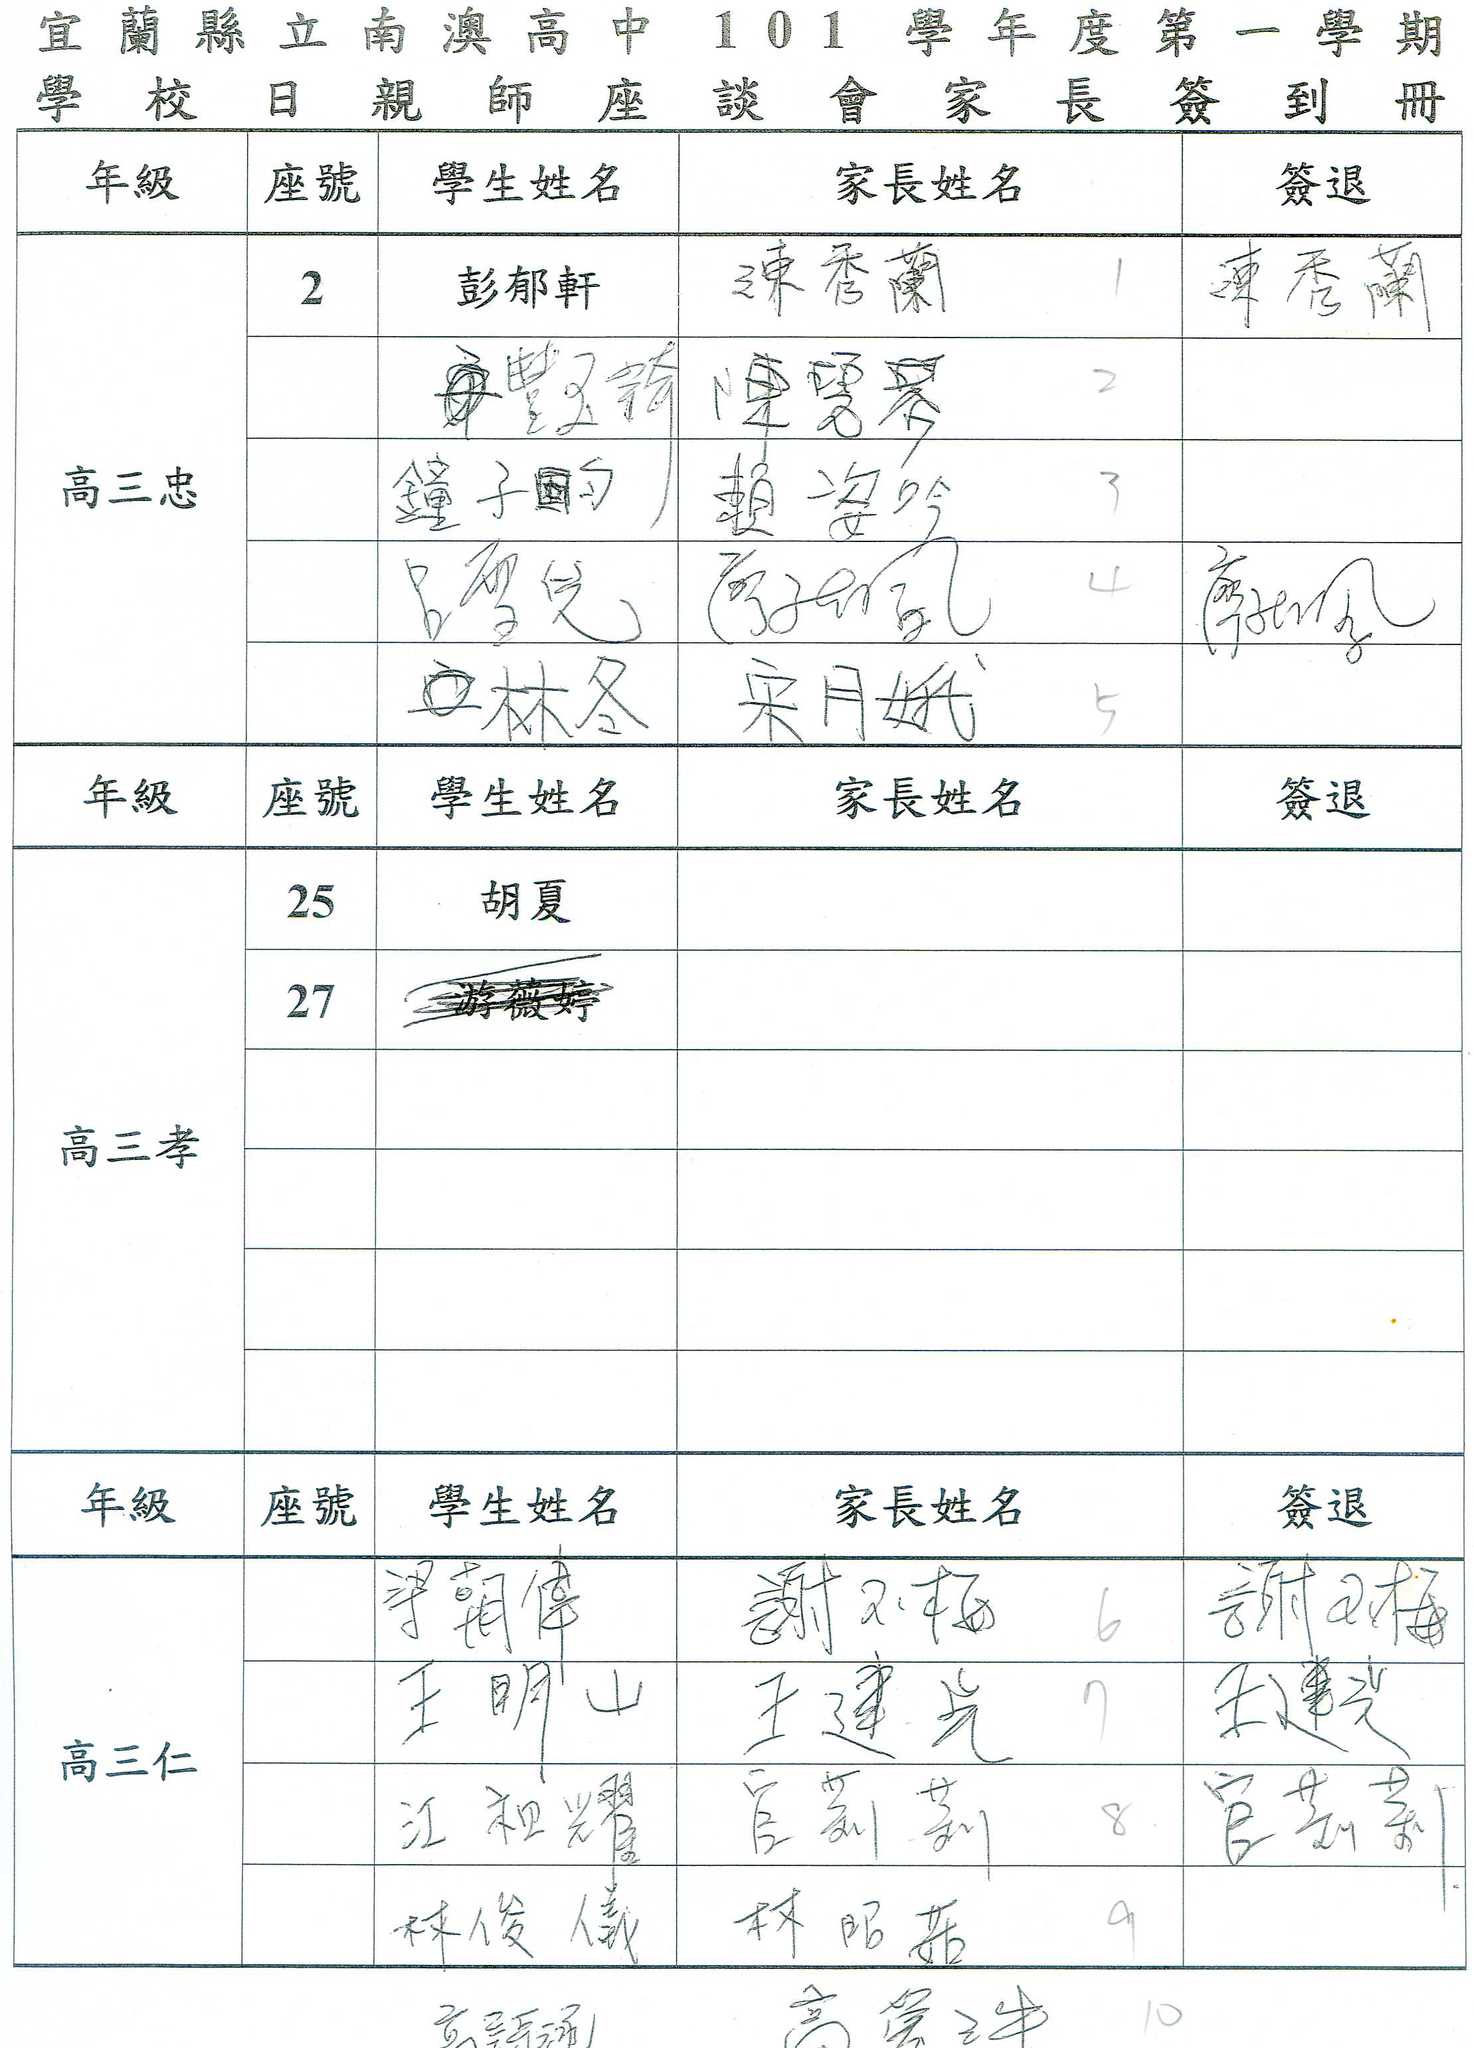 宜蘭縣立南澳高中101學年度第一學期
學校日親師座談會家長簽到冊
年級 座號 學生姓名 家長姓名 簽退
高三忠
2 彭郁軒 陳秀蘭 1 陳秀蘭
陳 2
鐘子 賴姿吟 3
呂雪兒 4
林冬 宋月娥 5
年級 座號 學生姓名 家長姓名 簽退
高三孝
25 胡夏
27 游薇婷
年級 座號 學生姓名 家長姓名 簽退
高三仁
梁朝偉 謝玉梅 6 謝玉梅
王明山 王建光 7 王建光
江祖耀 官莉莉 8 官莉莉
林俊儀 林昭茹 9
高 10